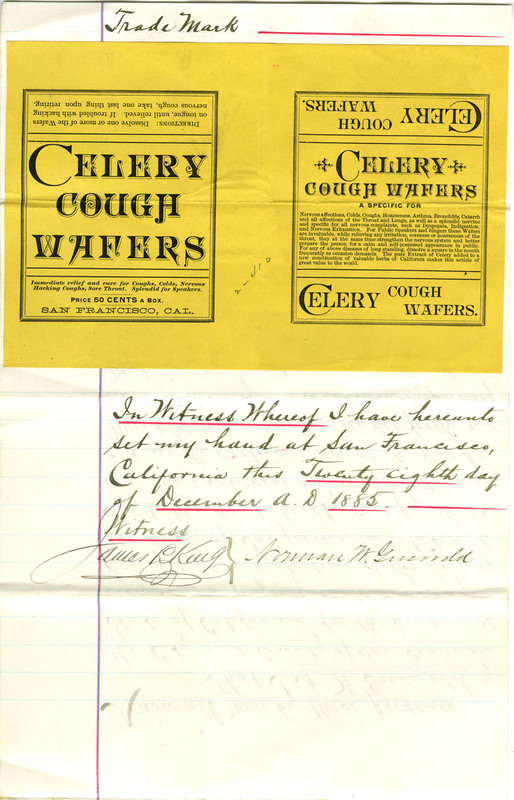 Trade Mark
DIRECTIONS: Dissolve one or more of the Wafers
on tongue, until relieved. If troubled with hacking
nervous cough, take one last thing upon retiring.
CELERY
COUGH
WAFERS
Immediate relief and cure for Coughs, Colds, Nervous
Hacking Coughs, Sore Throat. Splendid for Speakers.
PRICE 50 CENTS A BOX.
SAN FRANCISCO, CAL.
CELERY COUGH
WAFERS.
CELERY
COUGH WAFERS
A SPECIFIC FOR
Nervous affections, Colds, Coughs, Hoarseness, Asthma, Bronchitis, Catarrh
and all affections of the Throat and Lungs, as well as a splendid nervine
and specific for all nervous complaints, such as Dyspepsia, Indigestion,
and Nervous Exhaustion. For Public Speakers and Singers these Wafers
are invaluable, while relieving any irritation, soreness or hoarseness of the
throat, they at the same time strengthen the nervous system and better
prepare the person for a calm and self-possessed appearance in public.
For any of above diseases of long standing, dissolve a square in the mouth
frequently as occasion demands. The pure Extract of Celery added to a
new combination of valuable herbs of California makes this article of
great value to the world.
CELERY COUGH
WAFERS.
In Witness Whereof I have hereunto
set my hand at San Francisco,
California this Twenty eighth day
of December A.D. 1885.
Witness
James King } Norman W. Griswold